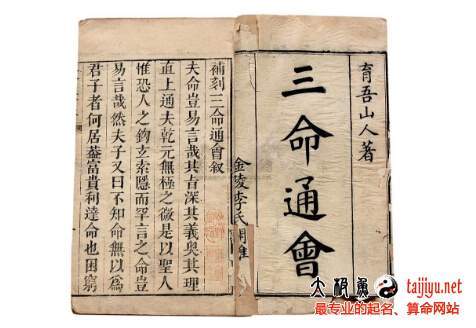 育吾山人著
三命通會
金陵李氏
補刻三命通會敘
夫命豈易言哉其旨深其義奧其理
直上通夫乾元無極之微是以聖人
惟恐人之鉤玄索隱而罕言之命豈
易言哉然夫子又曰不知命無以為
君子者何居蓋富貴利達命也困窮
taijiyu.net
最专业的起名、算命网站